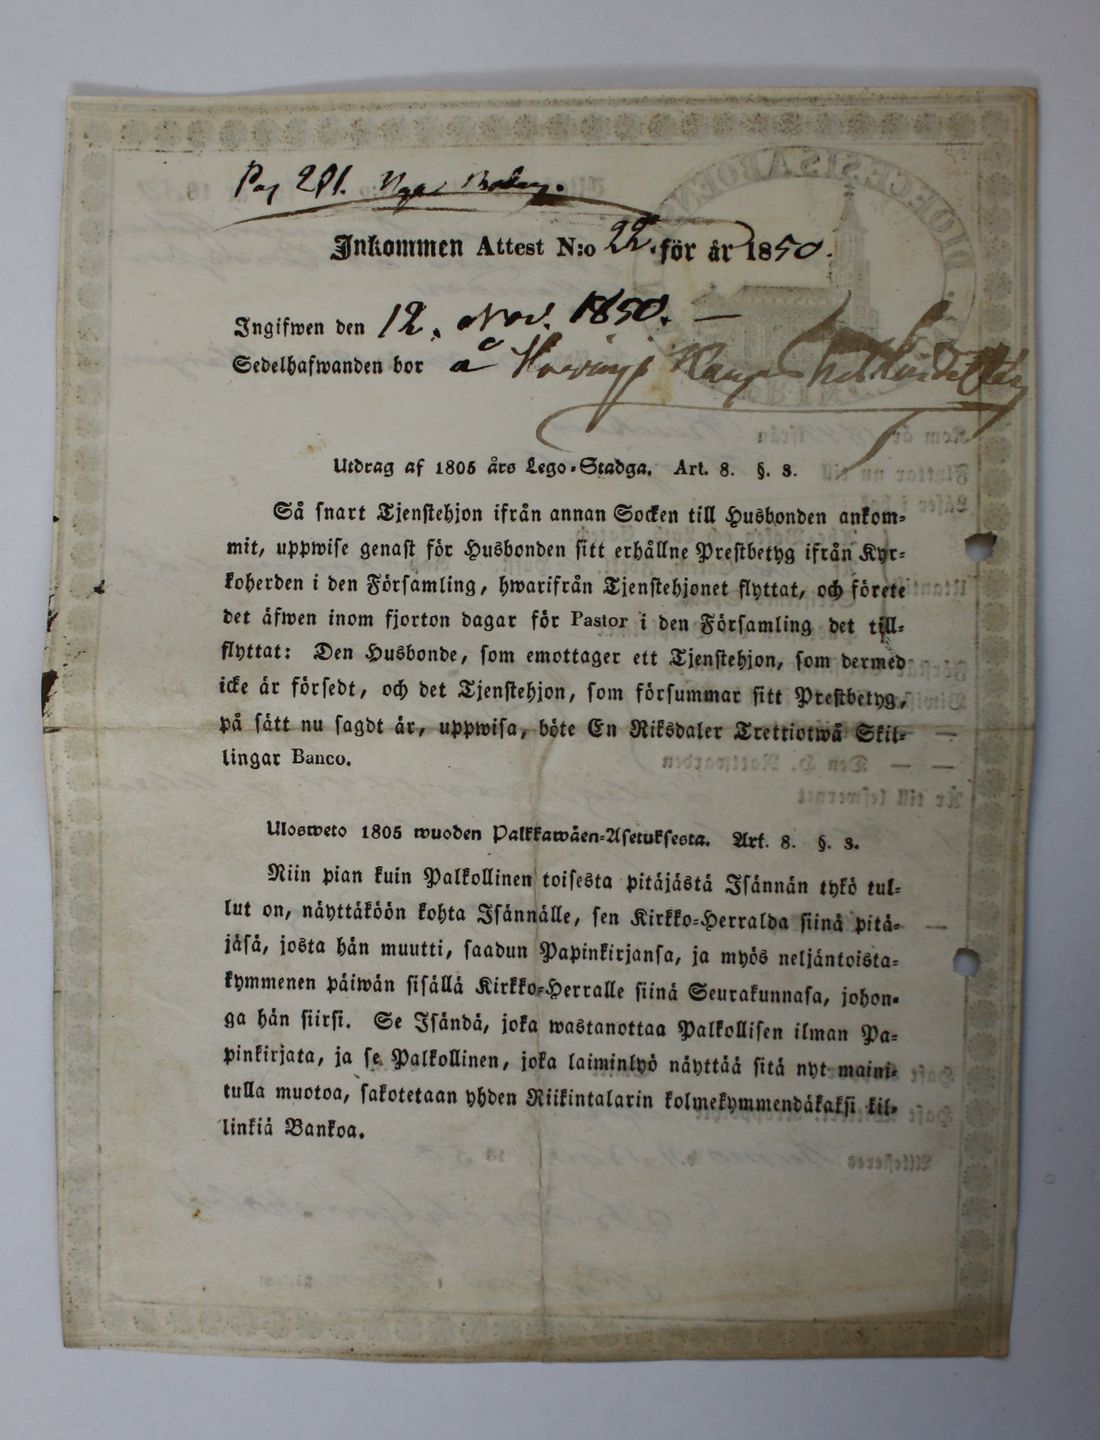 Pag 281. Nya
Inkommen Attest N:o 22. för år 1850.
Ingifwen den 12. Nov. 1850. —
Sedelhafwanden bor å
Utdrag af 1805 års Lego-Stadga. Art. 8. §. 3.
Så snart Tjenstehjon ifrån annan Socken till Husbonden ankom-
mit, uppwise genast för Husbonden sitt erhållne Prestbetyg ifrån Kyr-
koherden i den Församling, hwarifrån Tjenstehjonet flyttat, och förete
det äfwen inom fjorton dagar för Pastor i den Församling det till-
flyttat: Den Husbonde, som emottager ett Tjenstehjon, som dermed
icke är försedt, och det Tjenstehjon, som försummar sitt Prestbetyg,
på sätt nu sagdt är, uppwisa, böte En Riksdaler Trettiotwå Skil-
lingar Banco.
Ulosweto 1805 wuoden Palkkawäen-Asetuksesta. Art. 8. §. 3.
Niin pian kuin Palkollinen toisesta pitäjästä Isännän tykö tul-
lut on, näyttäköön kohta Isännälle, sen Kirkko-Herralda siinä pitä-
jäsä, josta hän muutti, saadun Papinkirjansa, ja myös neljäntoista-
kymmenen päiwän sisällä Kirkko-Herralle siinä Seurakunnasa, johon-
ga hän siirsi. Se Isändä, joka wastanottaa Palkollisen ilman Pa-
pinkirjata, ja se Palkollinen, joka laiminlyö näyttää sitä nyt maini-
tulla muotoa, sakotetaan yhden Riikintalarin kolmekymmendäkaksi kil-
linkiä Bankoa.